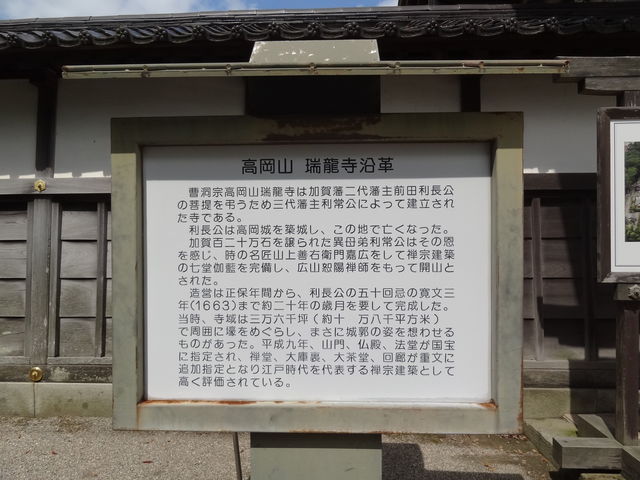 高岡山 瑞龍寺沿革
曹洞宗高岡山瑞龍寺は加賀藩二代藩主前田利長公
の菩提を弔うため三代藩主利常公によって建立され
た寺である。
利長公は高岡城を築城し、この地で亡くなった。
加賀百二十万石を譲られた異母弟利常公はその恩
を感じ、時の名匠山上善右衛門嘉広をして禅宗建築
の七堂伽藍を完備し、広山恕陽禅師をもって開山と
された。
造営は正保年間から、利長公の五十回忌の寛文三
年(1663)まで約二十年の歳月を要して完成した。
当時、寺域は三万六千坪（約十 万八千平方米）
で周囲に壕をめぐらし、まさに城郭の姿を想わせる
ものがあった。平成九年、山門、仏殿、法堂が国宝
に指定され、禅堂、大庫裏、大茶堂、回廊が重文に
追加指定となり江戸時代を代表する禅宗建築として
高く評価されている。